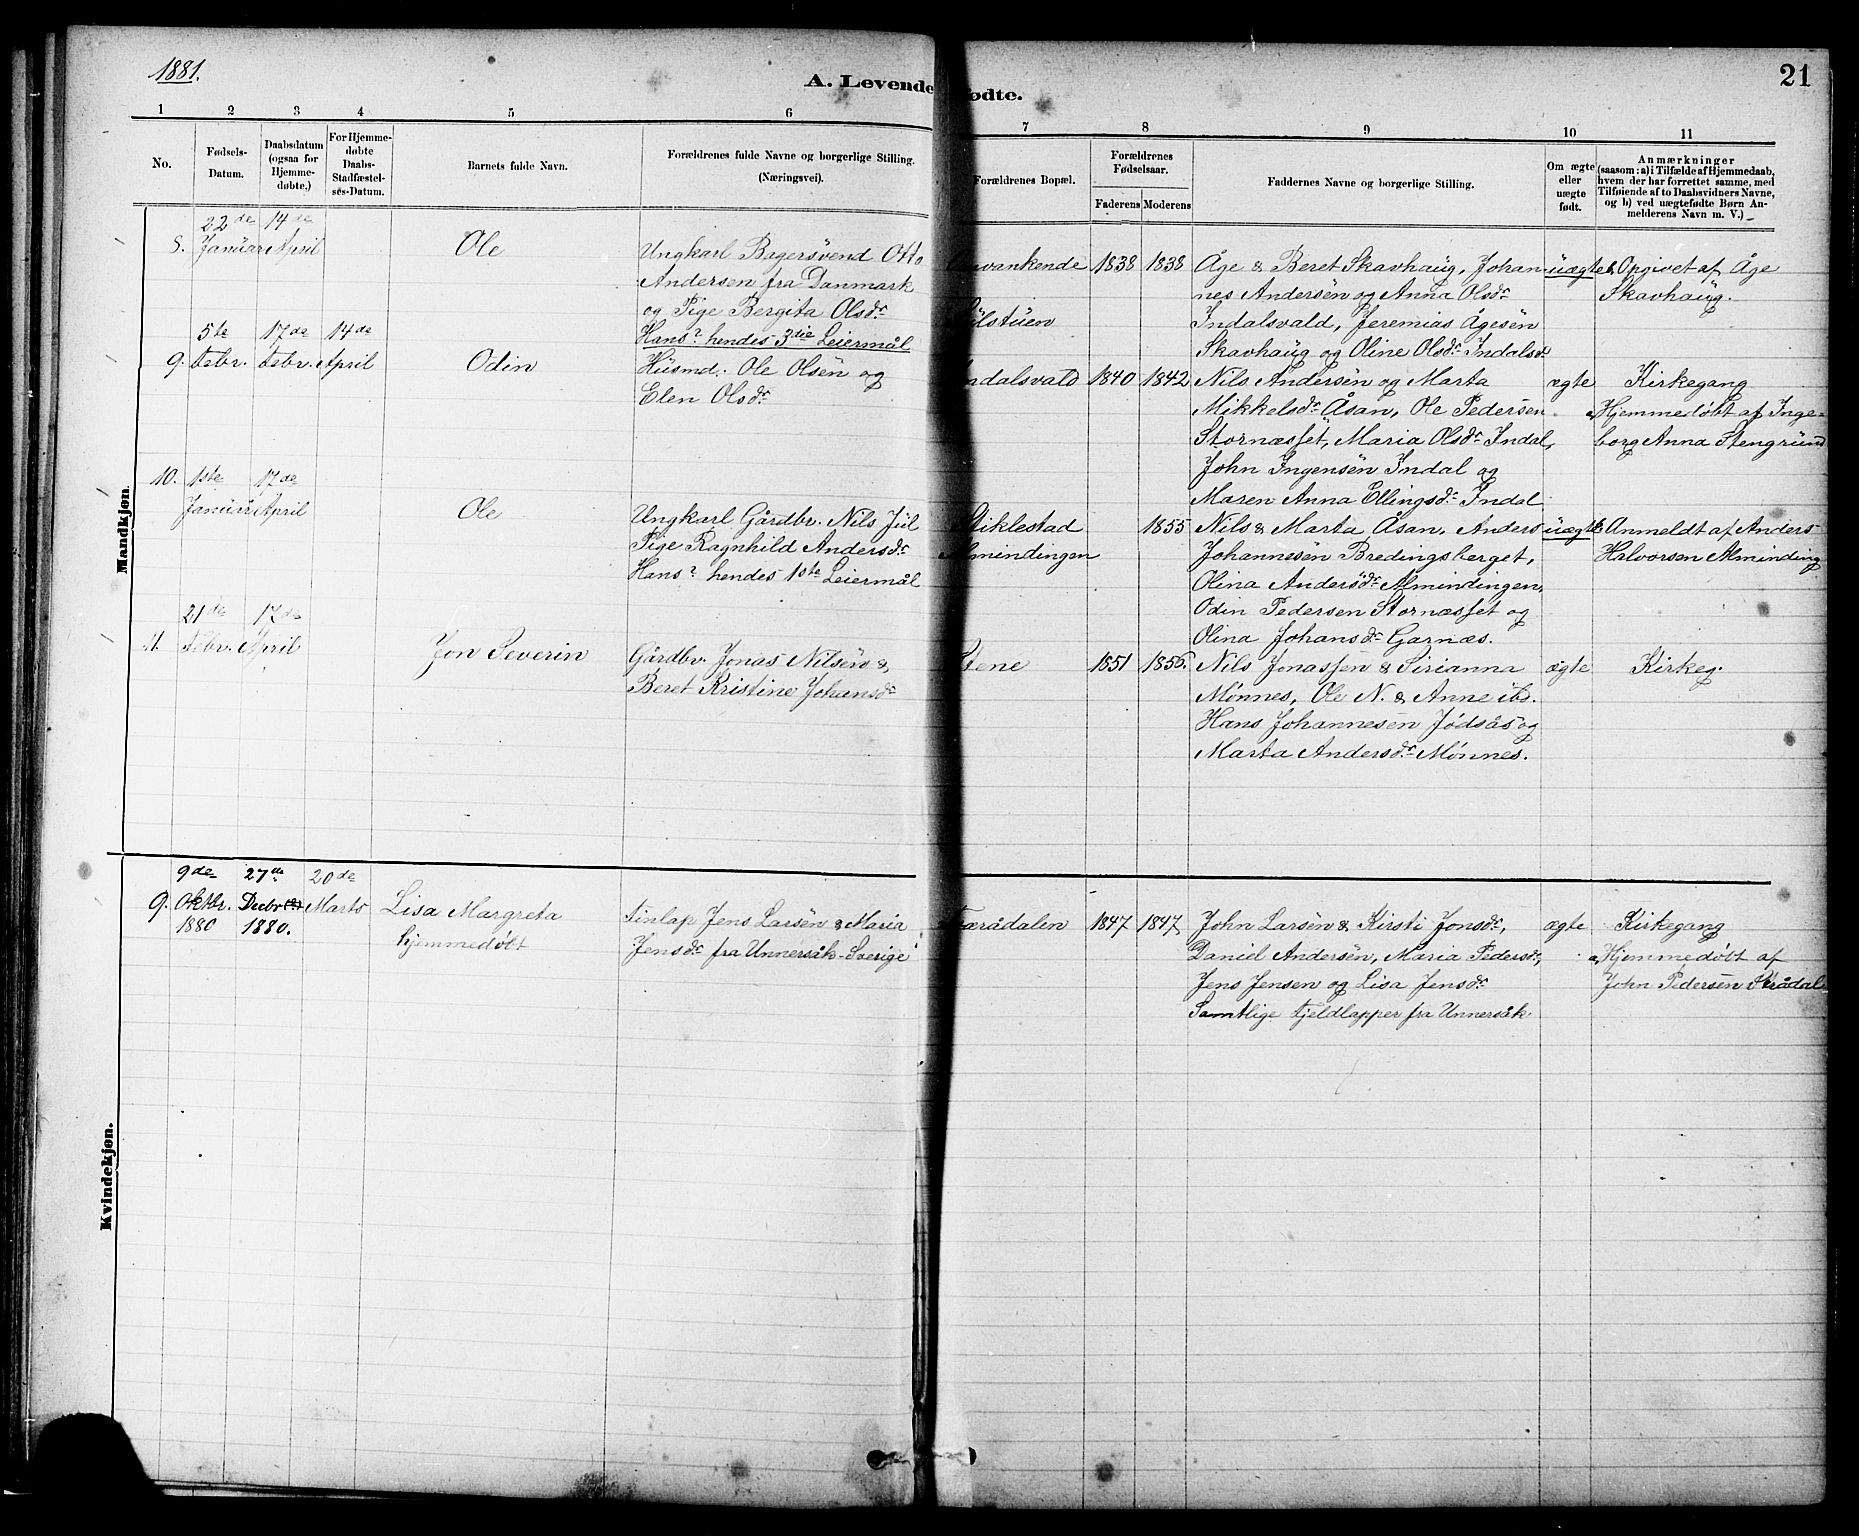 1881.
A. Levende
fødte.
21
1 2 3 4 5 6 7 8 9 10 11
No.
Fødsels-
Datum.
Daabsdatum
(ogsaa for
Hjemme-
døbte,)
For Hjemme-
døbte
Daabs-
Stadfæstel-
ses-Datum.
Barnets fulde Navn.
Forældrenes fulde Navne og borgerlige Stilling.
(Næringsvei).
Forældrenes Bopæl.
Forældrenes
Fødselsaar.
Faderens Moderens
Faddernes Navne og borgerlige Stilling.
Om ægte
eller
uægte
født.
Anmærkninger
(saasom: a) i Tilfælde af Hjemmedaab,
hvem der har forrettet samme, med
Tilføiende af to Daabsvidners Navne,
og b) ved uægtefødte Børn An-
melderens Navn m. V.)
Mandkjøn.
22de 14de
8. Januar April
Ole
Ungkarl Bagersvend Otto
Andersen fra Danmark
og Pige Bergita Olsdr
Hans? hendes 3die Leiermål
vankende
1838 1838
Åge & Beret Skavhaug, Johan-
nes Andersen og Anna Olsdr
Indalsvald, Jeremias Ågesen
Skavhaug og Oline Olsdr Indalsv
uægte
Opgivet af Åge
Skavhaug.
5te 17de 14de
9. Febr. Febr. April
Odin
Husmd. Ole Olsen og
Elen Olsdr
Indalsvald
1840 1842
Nils Andersen og Marta
Mikkelsdr Åsan, Ole Pedersen
Stornæsset, Maria Olsdr Indal,
John Ingensen Indal og
Maren Anna Ellingsdr Indal
ægte
Kirkegang
a, Hjemmedøbt af Inge-
borg Anna Stengrund
10. 1ste 17de
Januar April
Ole
Ungkarl Gårdbr. Nils Jul
Pige Ragnhild Andersdr
Hans? hendes 1ste Leiermål
Stiklestad
Almindingen
1855
Nils & Marta Åsan, Anders
Johannesen Bredingsberget,
Olina Andersdr Almindingen,
Odin Pedersen Stornæsset og
Olina Johansdr Garnæs.
uægte
Anmeldt af Anders
Halvorsen Alminding
21de 17de
11. Febr. April
Jon Severin
Gårdbr. Jonas Nilsen &
Beret Kristine Johansdr
Stene
1851 1856.
Nils Jonassen & Sirianna
Mønnes, Ole N. & Anne ibd.
Hans Johannesen Jødsås og
Marta Andersdr Mønnes.
ægte
Kirkeg.
Kvindekjøn.
9de 27de 20de
9. Oktbr. Decbr Marts
1880 1880.
Lisa Margreta
hjemmedøbt
Finlap Jens Larsen & Maria
Jensdr fra Unnersåk-Sverige
Færådalen
1847 1847
John Larsen & Kirsti Jonsdr,
Daniel Andersen, Maria Pedersdr,
Jens Jensen og Lisa Jensdr
Samtlige Fjeldlapper fra Unnersåk
ægte
Kirkegang
a, Hjemmedøbt af
John Pedersen